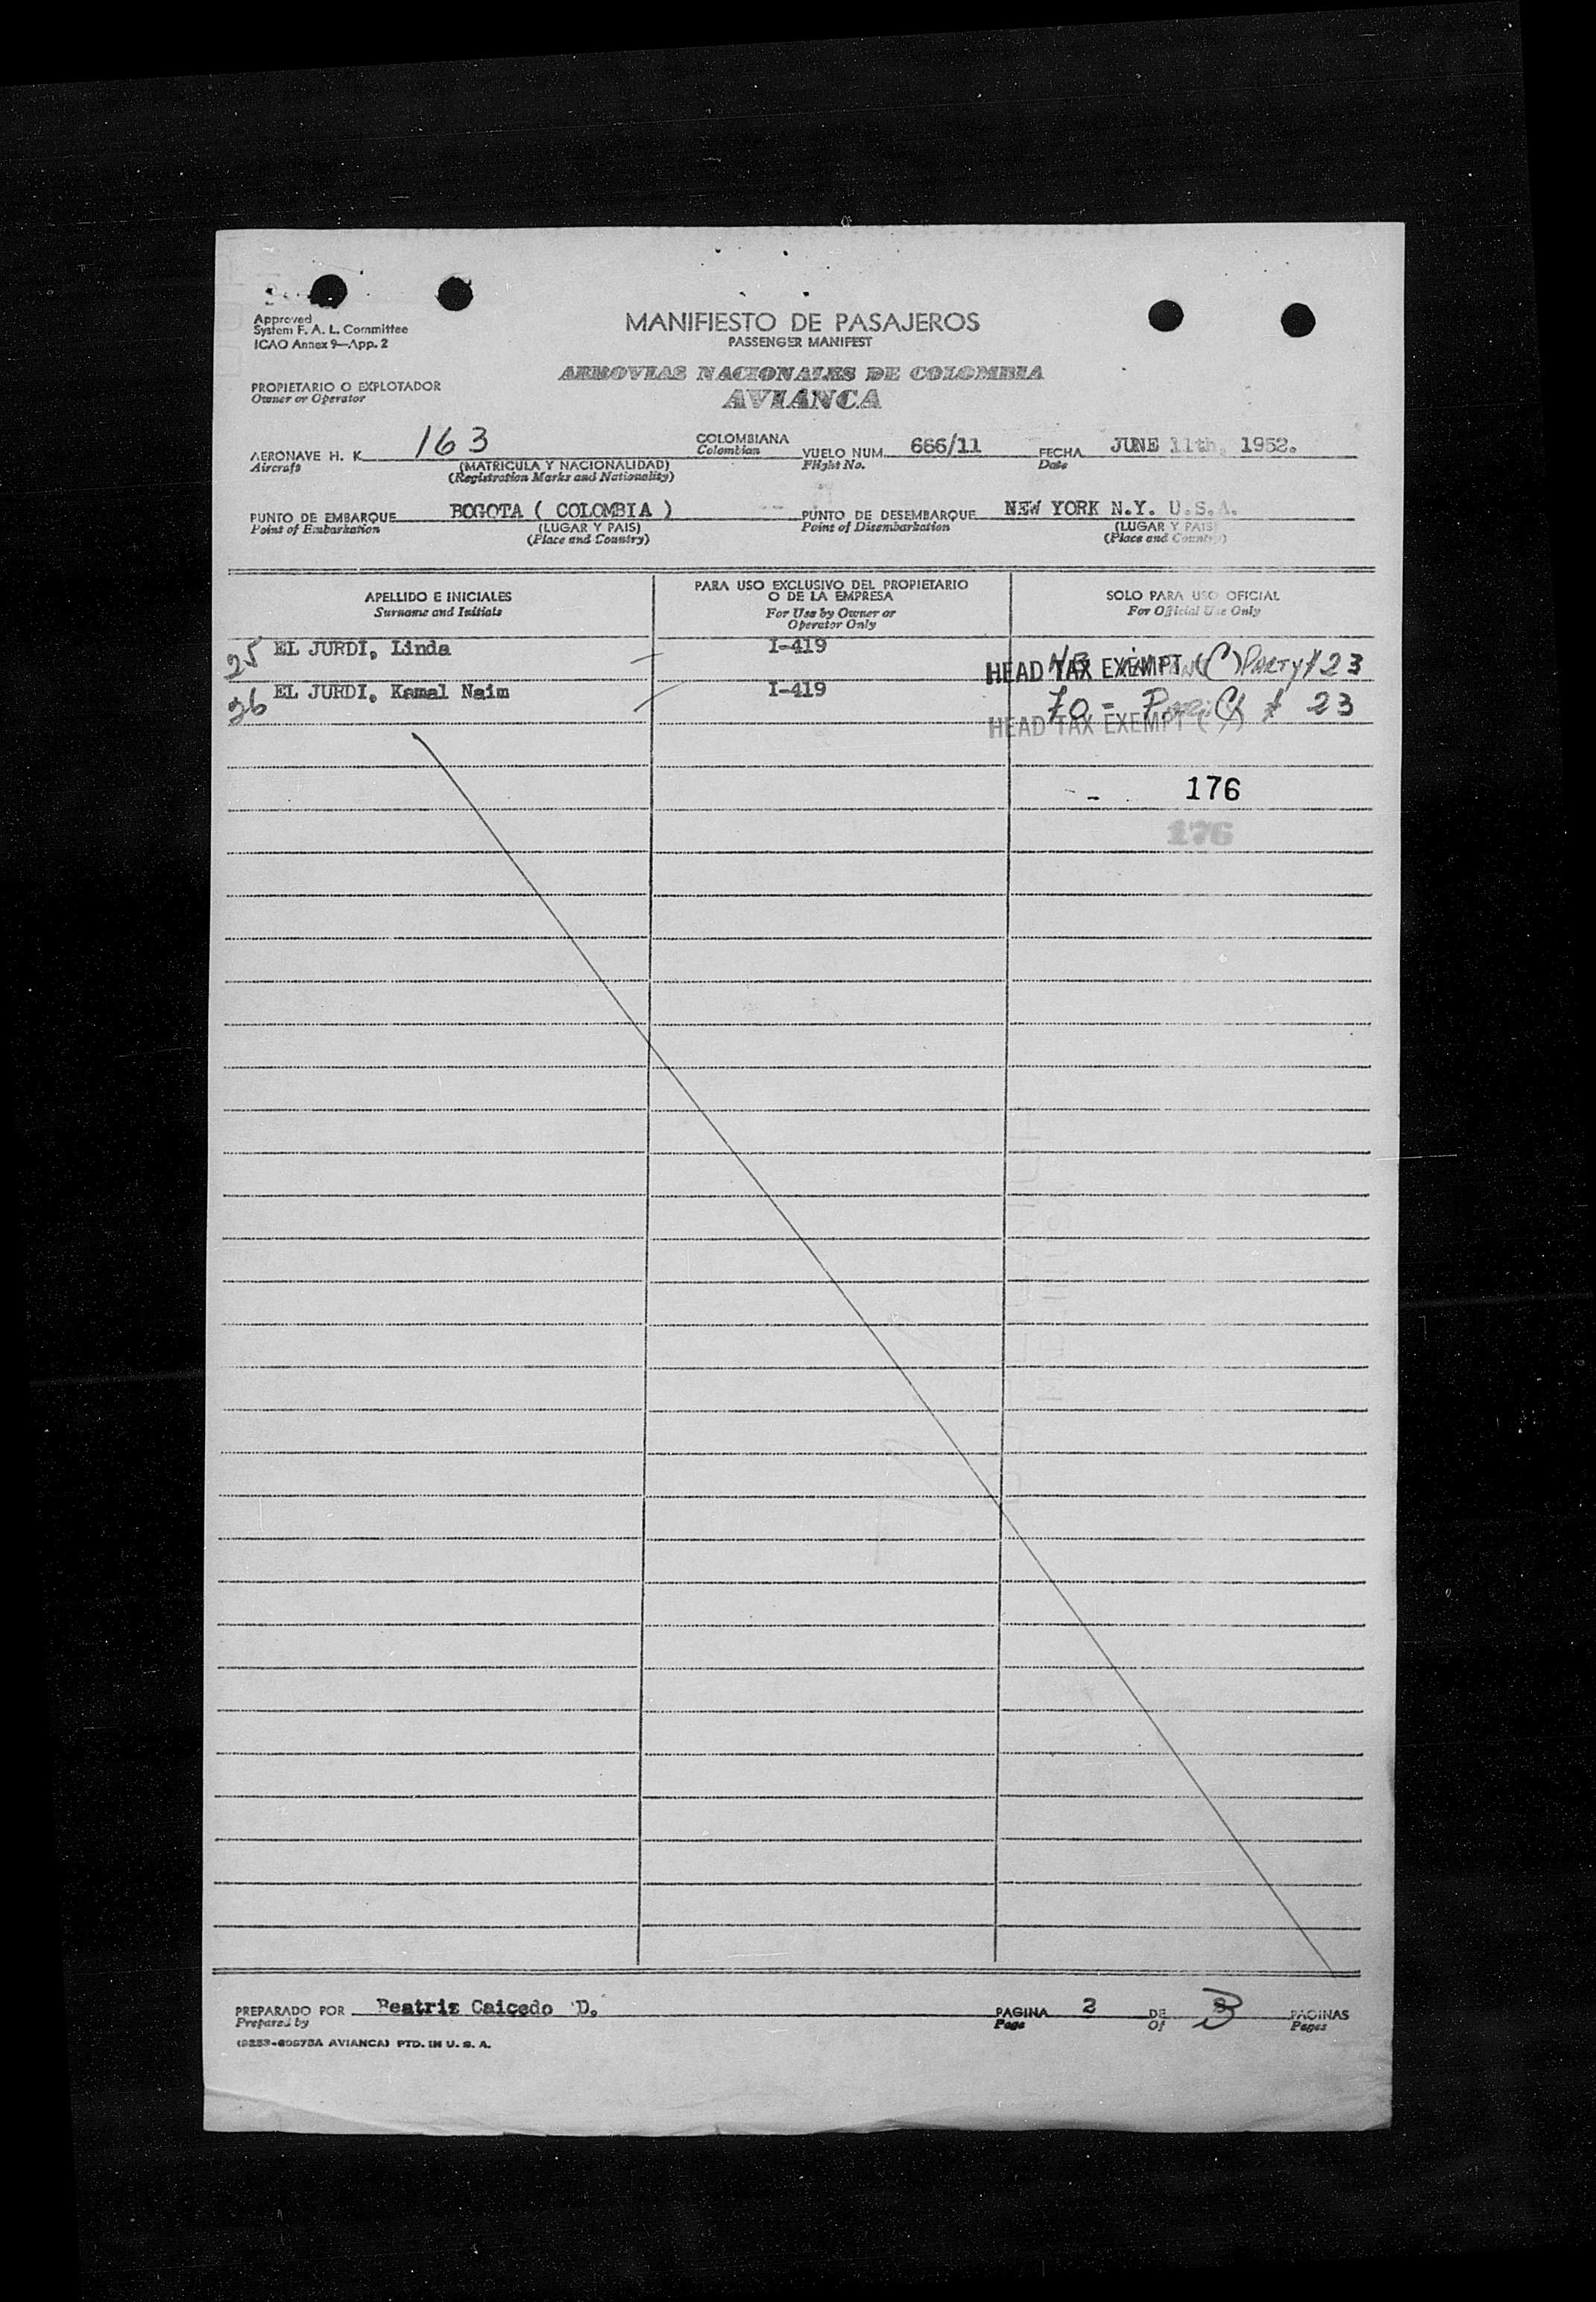 Approved
System F. A. L. Committee
ICAO Annex 9—App. 2
MANIFIESTO DE PASAJEROS
PASSENGER MANIFEST
AEROVIAS NACIONALES DE COLOMBIA
AVIANCA
PROPIETARIO O EXPLOTADOR
Owner or Operator
AERONAVE H. K. 163 COLOMBIANA VUELO NUM. 666/11 FECHA JUNE 11th, 1952.
Aircraft (MATRICULA Y NACIONALIDAD) Colombian Flight No. Date
(Registration Marks and Nationality)
PUNTO DE EMBARQUE BOGOTA ( COLOMBIA ) PUNTO DE DESEMBARQUE NEW YORK N.Y. U.S.A.
Point of Embarkation (LUGAR Y PAIS) Point of Disembarkation (LUGAR Y PAIS)
(Place and Country) (Place and Country)
APELLIDO E INICIALES
Surname and Initials
PARA USO EXCLUSIVO DEL PROPIETARIO
O DE LA EMPRESA
For Use by Owner or
Operator Only
SOLO PARA USO OFICIAL
For Official Use Only
25 EL JURDI, Linda I-419 HEAD TAX EXEMPT (C) PARTY # 23
26 EL JURDI, Kamal Naim I-419 # 23
HEAD TAX EXEMPT
176
176
PREPARADO POR Beatriz Caicedo D. PAGINA 2 DE 3 PAGINAS
Prepared by Page Of Pages
AVIANCA) PTD. IN U. S. A.